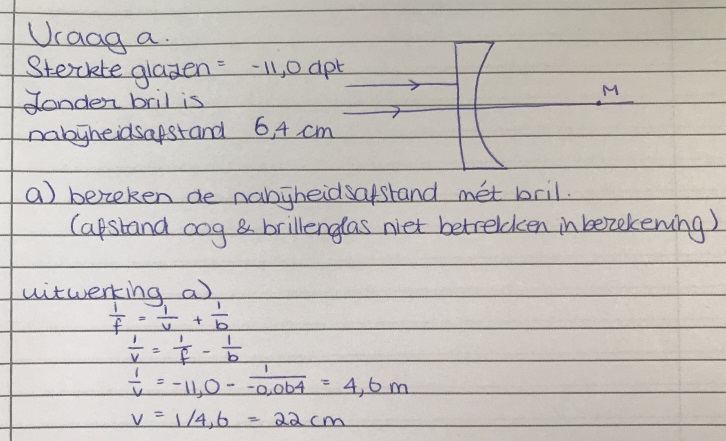 Vraag a.
Sterkte glazen = -11,0 dpt
Zonder bril is
nabijheidsafstand 6,4 cm
M
a) bereken de nabijheidsafstand mét bril.
(afstand oog & brillenglas niet betrekken in berekening)
uitwerking a)
1/f = 1/v + 1/b
1/v = 1/f - 1/b
1/v = -11,0 - 1/-0,064 = 4,6 m
v = 1/4,6 = 22 cm